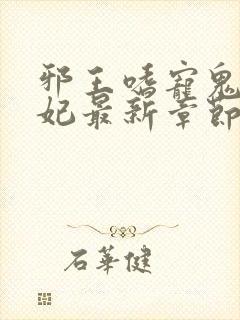 邪王嗜寵鬼
妃最新章節
石華健